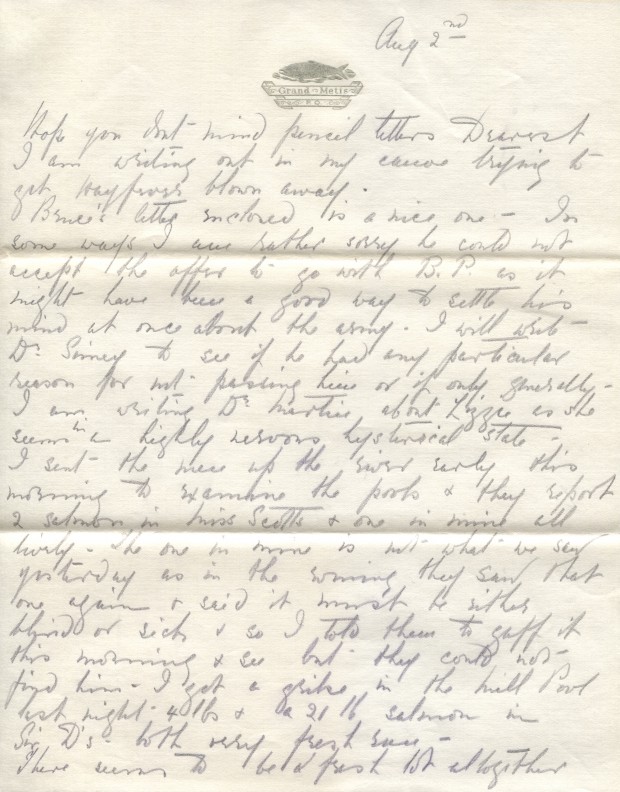 Aug 2nd
Grand - Metis
P.O.
Hope you don't mind pencil letters Dearest
I am writing out in my canoe trying to
get Hayfever blown away.
Bruce's letter enclosed is a nice one - In
some ways I am rather sorry he could not
accept the offer to go with B.P. as it
might have been a good way to settle his
mind at once about the army. I will write
Dr. to see if he had any particular
reason for not passing him or if only generally -
I am writing Dr Martin about Lizzie as she
seems in a highly nervous hysterical state -
I sent the men up the river early this
morning to examine the pools & they report
2 salmon in Miss Scotts & one in mine all
lively - The one in mine is not what we saw
yesterday as in the evening they saw that
one again & said it must be either
blind or sick & so I told them to gaff it
this morning & see but they could not
find him - I got a grilse in the Mill Pool
last night 4 lbs & a 21 lb salmon in
Sir D's - both very fresh run -
There seems to be a fresh lot altogether